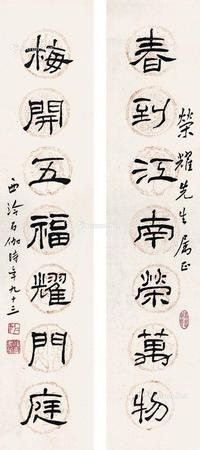 榮耀先生属正
春到江南榮萬物
梅開五福耀門庭
西泠石伽時年九十三